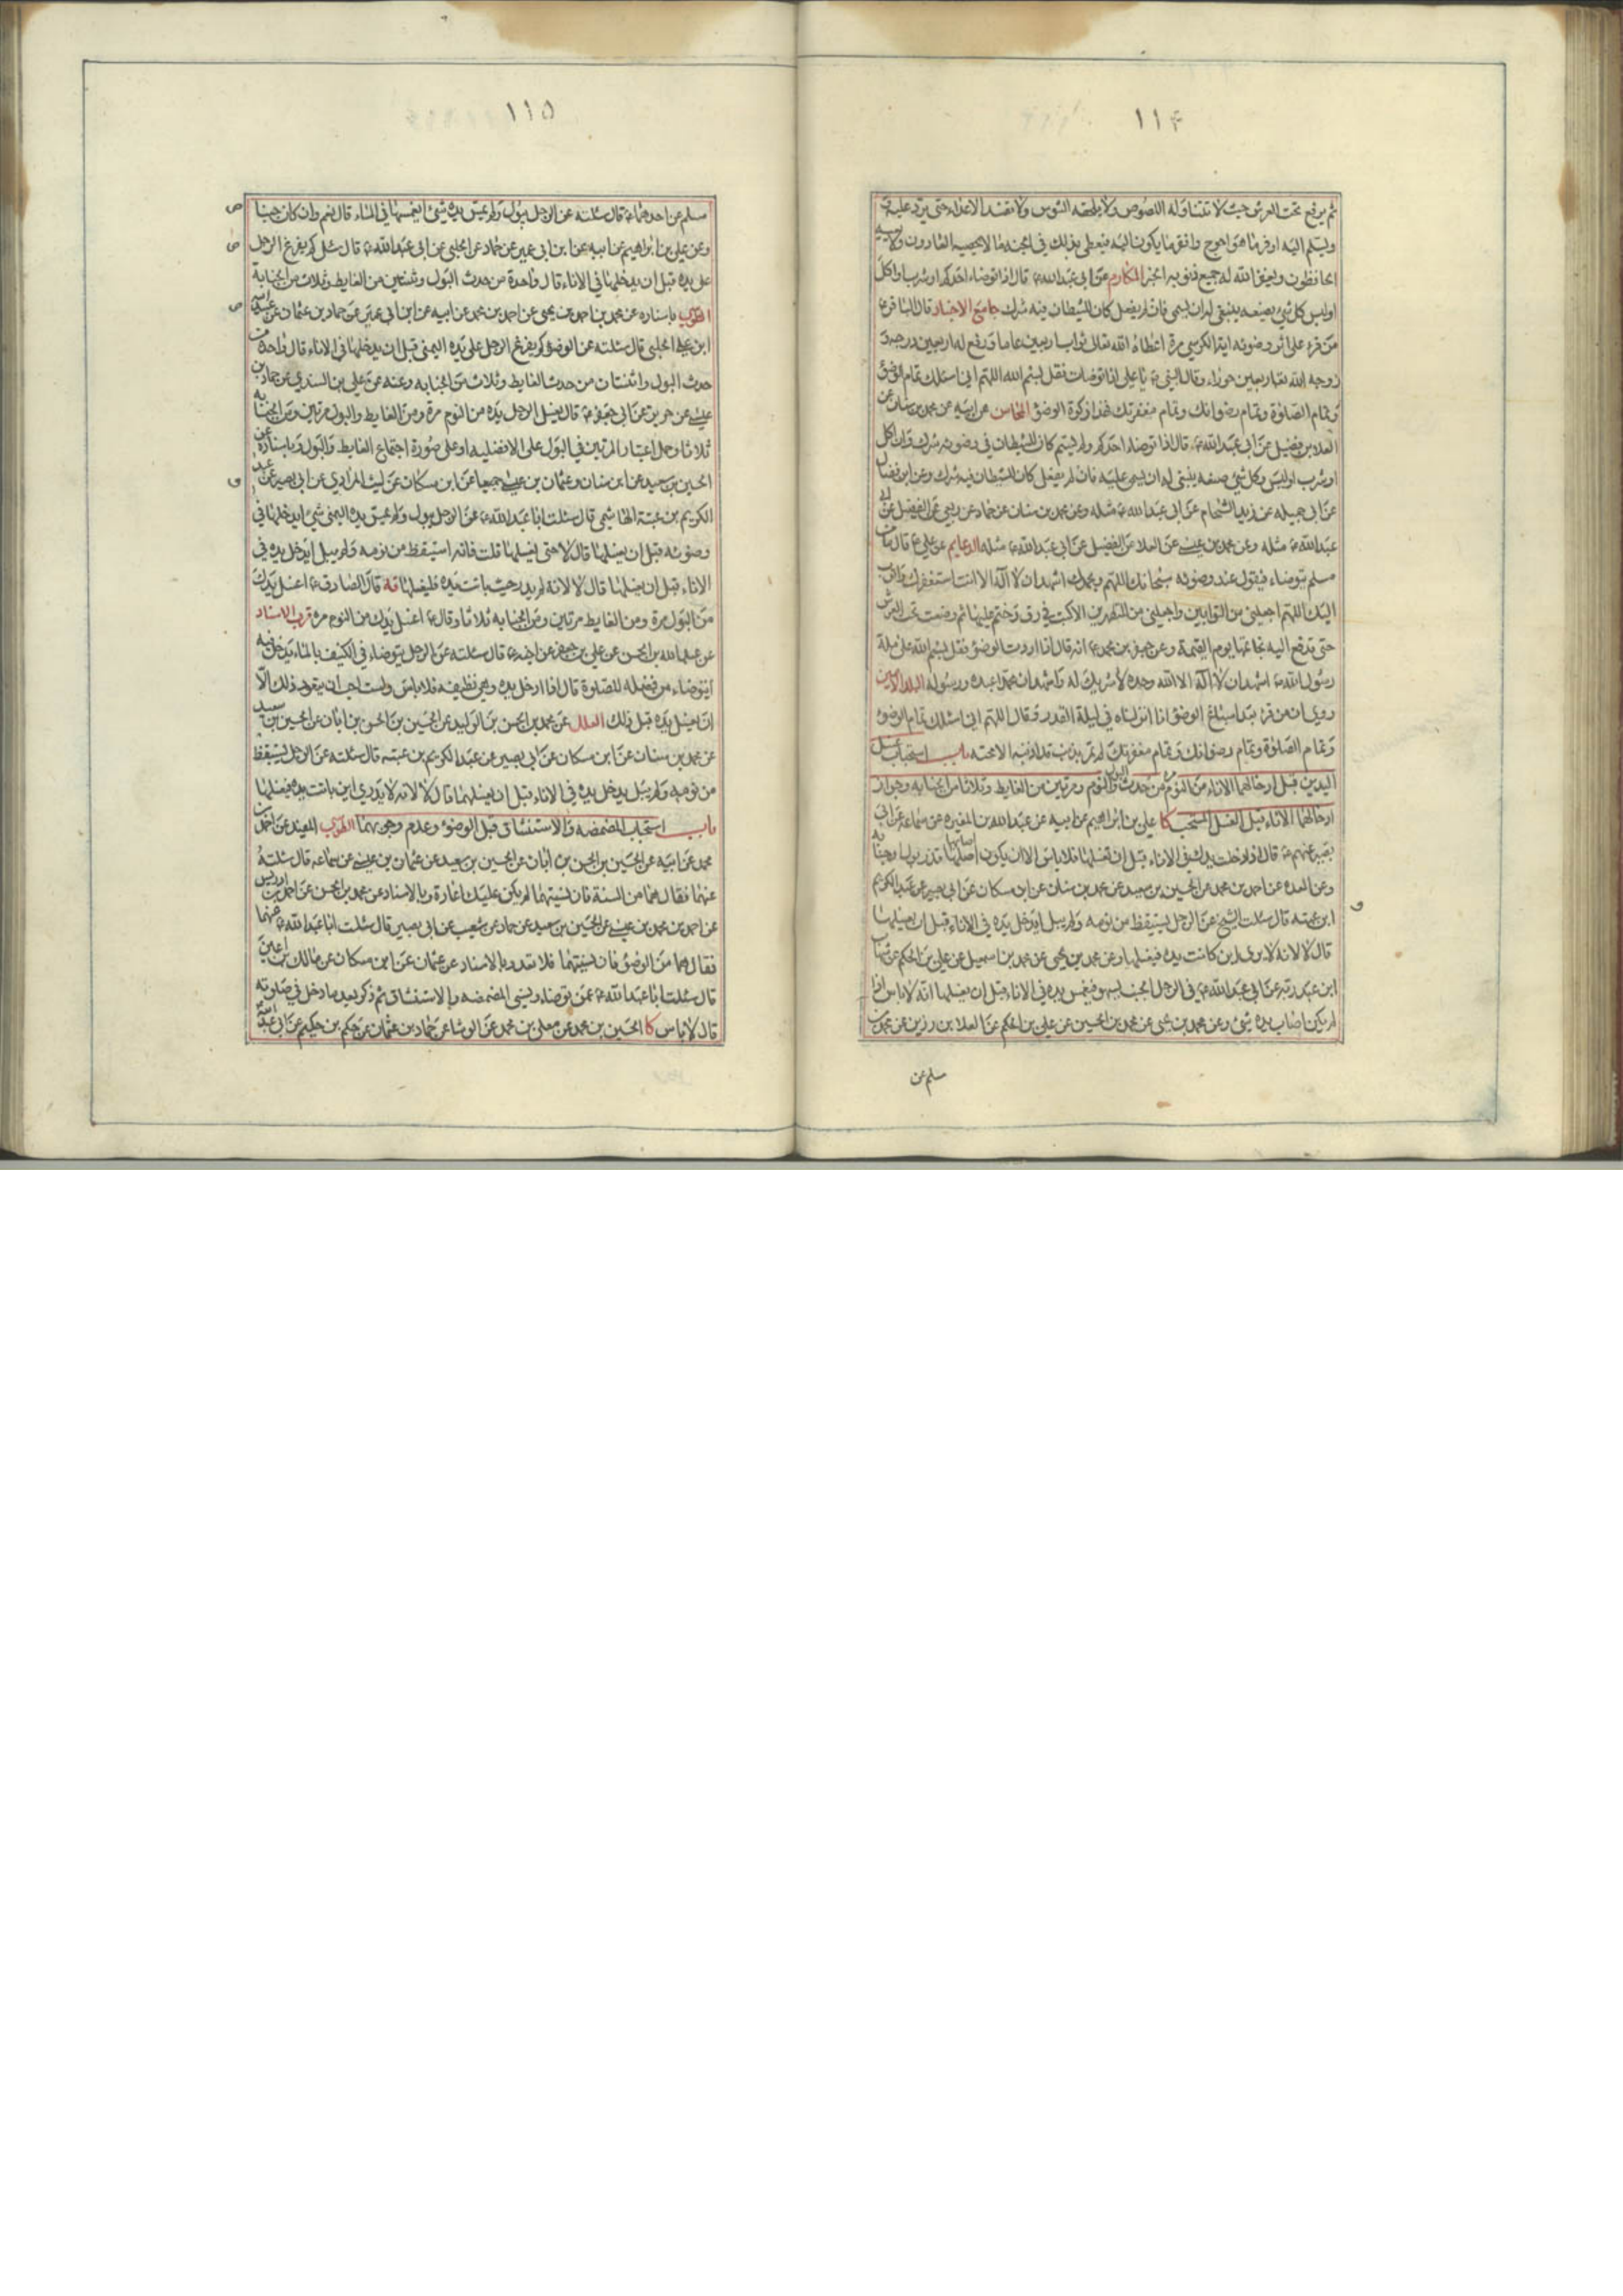 ١١۴
ثم يرفع تحت العرش حيث لا تتناوله اللصوص ولا يلحقه السوس ولا يفسده الاعداء حتى يرد عليه
ويسلم اليه اوفر ما هو احوج وافقر ما يكون اليه فيعطى بذلك في الجنة ما لا يحصيه العادون ولا يعيه
الحافظون ويغفر الله له جميع ذنوبه الخبر المكارم عن ابي عبد الله ع قال اذا توضاء احدكم او شرب او اكل
او لبس كل شيء يصنعه ينبغى له ان يسمى فان لم يفعل كان للشيطان فيه شرك جامع الاخبار قال الباقر ع
من قرء على اثر وضوئه اية الكرسي مرة اعطاه الله تعالى ثواب اربعين عاما ورفع له اربعين درجة و
زوجه الله تعالى اربعين حوراء وقال النبي ص يا علي اذا توضات فقل بسم الله اللهم اني اسئلك تمام الوضوء
وتمام الصلوة وتمام رضوانك وتمام مغفرتك فهذا زكوة الوضوء المحاسن عن ابيه عن محمد بن سنان عن
العلاء بن فضيل عن ابي عبد الله ع قال اذا توضاء احدكم ولم يسم كان للشيطان في وضوئه شرك وان اكل
او شرب او لبس وكل شيء صنعه ينبغى له ان يسمى عليه فان لم يفعل كان للشيطان فيه شرك وعن ابن فضال
عن ابي جميله عن زيد الشحام عن ابي عبد الله ع مثله وعن محمد بن سنان عن حماد عن ربعي عن الفضيل عن ابي
عبد الله ع مثله وعن محمد بن عيسى عن العلا عن الفضيل عن ابي عبد الله ع مثله الدعايم عن علي ع قال ما من
مسلم يتوضاء فيقول عند وضوئه سبحانك اللهم وبحمدك اشهد ان لا اله الا انت استغفرك واتوب
اليك اللهم اجعلني من التوابين واجعلني من المتطهرين الا كتب في رق وختم عليها ثم وضعت تحت العرش
حتى تدفع اليه بخاتمها يوم القيمة وعن جعفر بن محمد ع انه قال اذا اردت الوضوء فقل بسم الله على ملة
رسول الله ص اشهد ان لا اله الا الله وحده لا شريك له واشهد ان محمدا عبده ورسوله البلد الامين
روي ان من قرء بعد اسباغ الوضوء انا انزلناه في ليلة القدر وقال اللهم اني اسئلك تمام الوضوء
وتمام الصلوة وتمام رضوانك وتمام مغفرتك لم تمر بذنب قد اذنبه الا محته باب استحباب غسل
اليدين قبل ادخالهما الاناء من النوم مرة من حدث البول والنوم ومرتين من الغايط وثلاثا من الجنابه وجواز
ادخالهما الاناء قبل الغسل المستحب كا علي بن ابراهيم عن ابيه عن عبد الله بن المغيره عن سماعة عن ابي
بصير عنهم ع قال اذا دخلت يدك في الاناء قبل ان تغسلها فلا باس الا ان يكون اصابها قذر بول او جنابه
وعن العده عن احمد بن محمد عن الحسين بن سعيد عن محمد بن سنان عن ابن مسكان عن ابي بصير عن عبد الكريم
ابن عتبه قال سئلت الشيخ عن الرجل يستيقظ من نومه ولم يبل ايدخل يده في الاناء قبل ان يغسلها
قال لا لانه لا يدري اين كانت يده فيغسلها وعن محمد بن يحيى عن محمد بن اسمعيل عن علي بن الحكم عن شهاب
ابن عبد ربه عن ابي عبد الله ع في الرجل الجنب يسهو فيغمس يده في الاناء قبل ان يغسلها انه لا باس اذا
لم يكن اصاب يده شيء وعن محمد بن يحيى عن محمد بن الحسين عن علي بن الحكم عن العلا بن رزين عن محمد بن
مسلم عن
١١۵
مسلم عن احدهما ع قال سئلته عن الرجل يبول ولم يمس يده شيء ايغمسها في الماء قال نعم وان كان جنبا
وعن علي بن ابراهيم عن ابيه عن ابن ابي عمير عن حماد عن الحلبي عن ابي عبد الله ع قال سئل كم يفرغ الرجل
على يده قبل ان يدخلها في الاناء قال واحدة من حدث البول وثنتين من الغايط وثلاث من الجنابة
الطوسي باسناده عن محمد بن احمد بن يحيى عن احمد بن محمد عن ابيه عن ابن ابي عمير عن حماد بن عثمان عن عبيد الله
ابن علي الحلبي قال سئلته عن الوضوء كم يفرغ الرجل على يده اليمنى قبل ان يدخلها في الاناء قال واحدة من
حدث البول واثنتان من حدث الغايط وثلاث من الجنابه وعنه عن علي بن السندي عن حماد بن
عيسى عن حريز عن ابي جعفر ع قال يغسل الرجل يده من النوم مرة ومن الغايط والبول مرتين ومن الجنابه
ثلاثا وحمل اعتبار المرتين في البول على الافضليه او على صورة اجتماع الغايط والبول وباسناده عن
الحسين بن سعيد عن ابن سنان وعثمان بن عيسى جميعا عن ابن مسكان عن ليث المرادي عن ابي بصير عن عبد
الكريم بن عتبة الهاشمي قال سئلت ابا عبد الله ع عن الرجل يبول ولم يمس يده اليمنى شيء ايدخلها في
وضوئه قبل ان يغسلها قال لا حتى يغسلها قلت فانه استيقظ من نومه ولم يبل ايدخل يده في
الاناء قبل ان يغسلها قال لا لانه لم يدر حيث باتت يده فليغسلها قه قال الصادق ع اغسل يدك
من البول مرة ومن الغايط مرتين ومن الجنابه ثلاثا وقال ع اغسل يدك من النوم مرة قرب الاسناد
عن عبد الله بن الحسن عن علي بن جعفر عن اخيه ع قال سئلته عن الرجل يتوضاء في الكنيف بالماء يدخل يده فيه
ايتوضاء من فضله للصلوة قال اذا ادخل يده وهي نظيفه فلا باس ولست احب ان يتعود ذلك الا
ان يغسل يده قبل ذلك العلل عن محمد بن الحسن بن الوليد عن الحسين بن الحسن بن ابان عن الحسين بن سعيد
عن محمد بن سنان عن ابن مسكان عن ابي بصير عن عبد الكريم بن عتبه قال سئلته عن الرجل يستيقظ
من نومه ولم يبل يدخل يده في الاناء قبل ان يغسلها قال لا لانه لا يدري اين باتت يده فيغسلها
باب استحباب المضمضه والاستنشاق قبل الوضوء وعدم وجوبهما الطوسي المفيد عن احمد بن
محمد عن ابيه عن الحسين بن الحسن بن ابان عن الحسين بن سعيد عن عثمان بن عيسى عن سماعه قال سئلته
عنهما فقال هما من السنة فان نسيتهما لم يكن عليك اعادة وبالاسناد عن محمد بن الحسن عن احمد بن ادريس
عن احمد بن محمد بن عيسى عن الحسين بن سعيد عن حماد عن شعيب عن ابي بصير قال سئلت ابا عبد الله ع عنهما
فقال هما من الوضوء فان نسيتهما فلا تعد وبالاسناد عن عثمان عن ابن مسكان عن مالك بن اعين
قال سئلت ابا عبد الله ع عمن توضاء ونسي المضمضه والاستنشاق ثم ذكر بعد ما دخل في صلوته
قال لا باس كا الحسين بن محمد عن معلى بن محمد عن الوشا عن حماد بن عثمان عن حكم بن حكيم عن ابي عبد الله